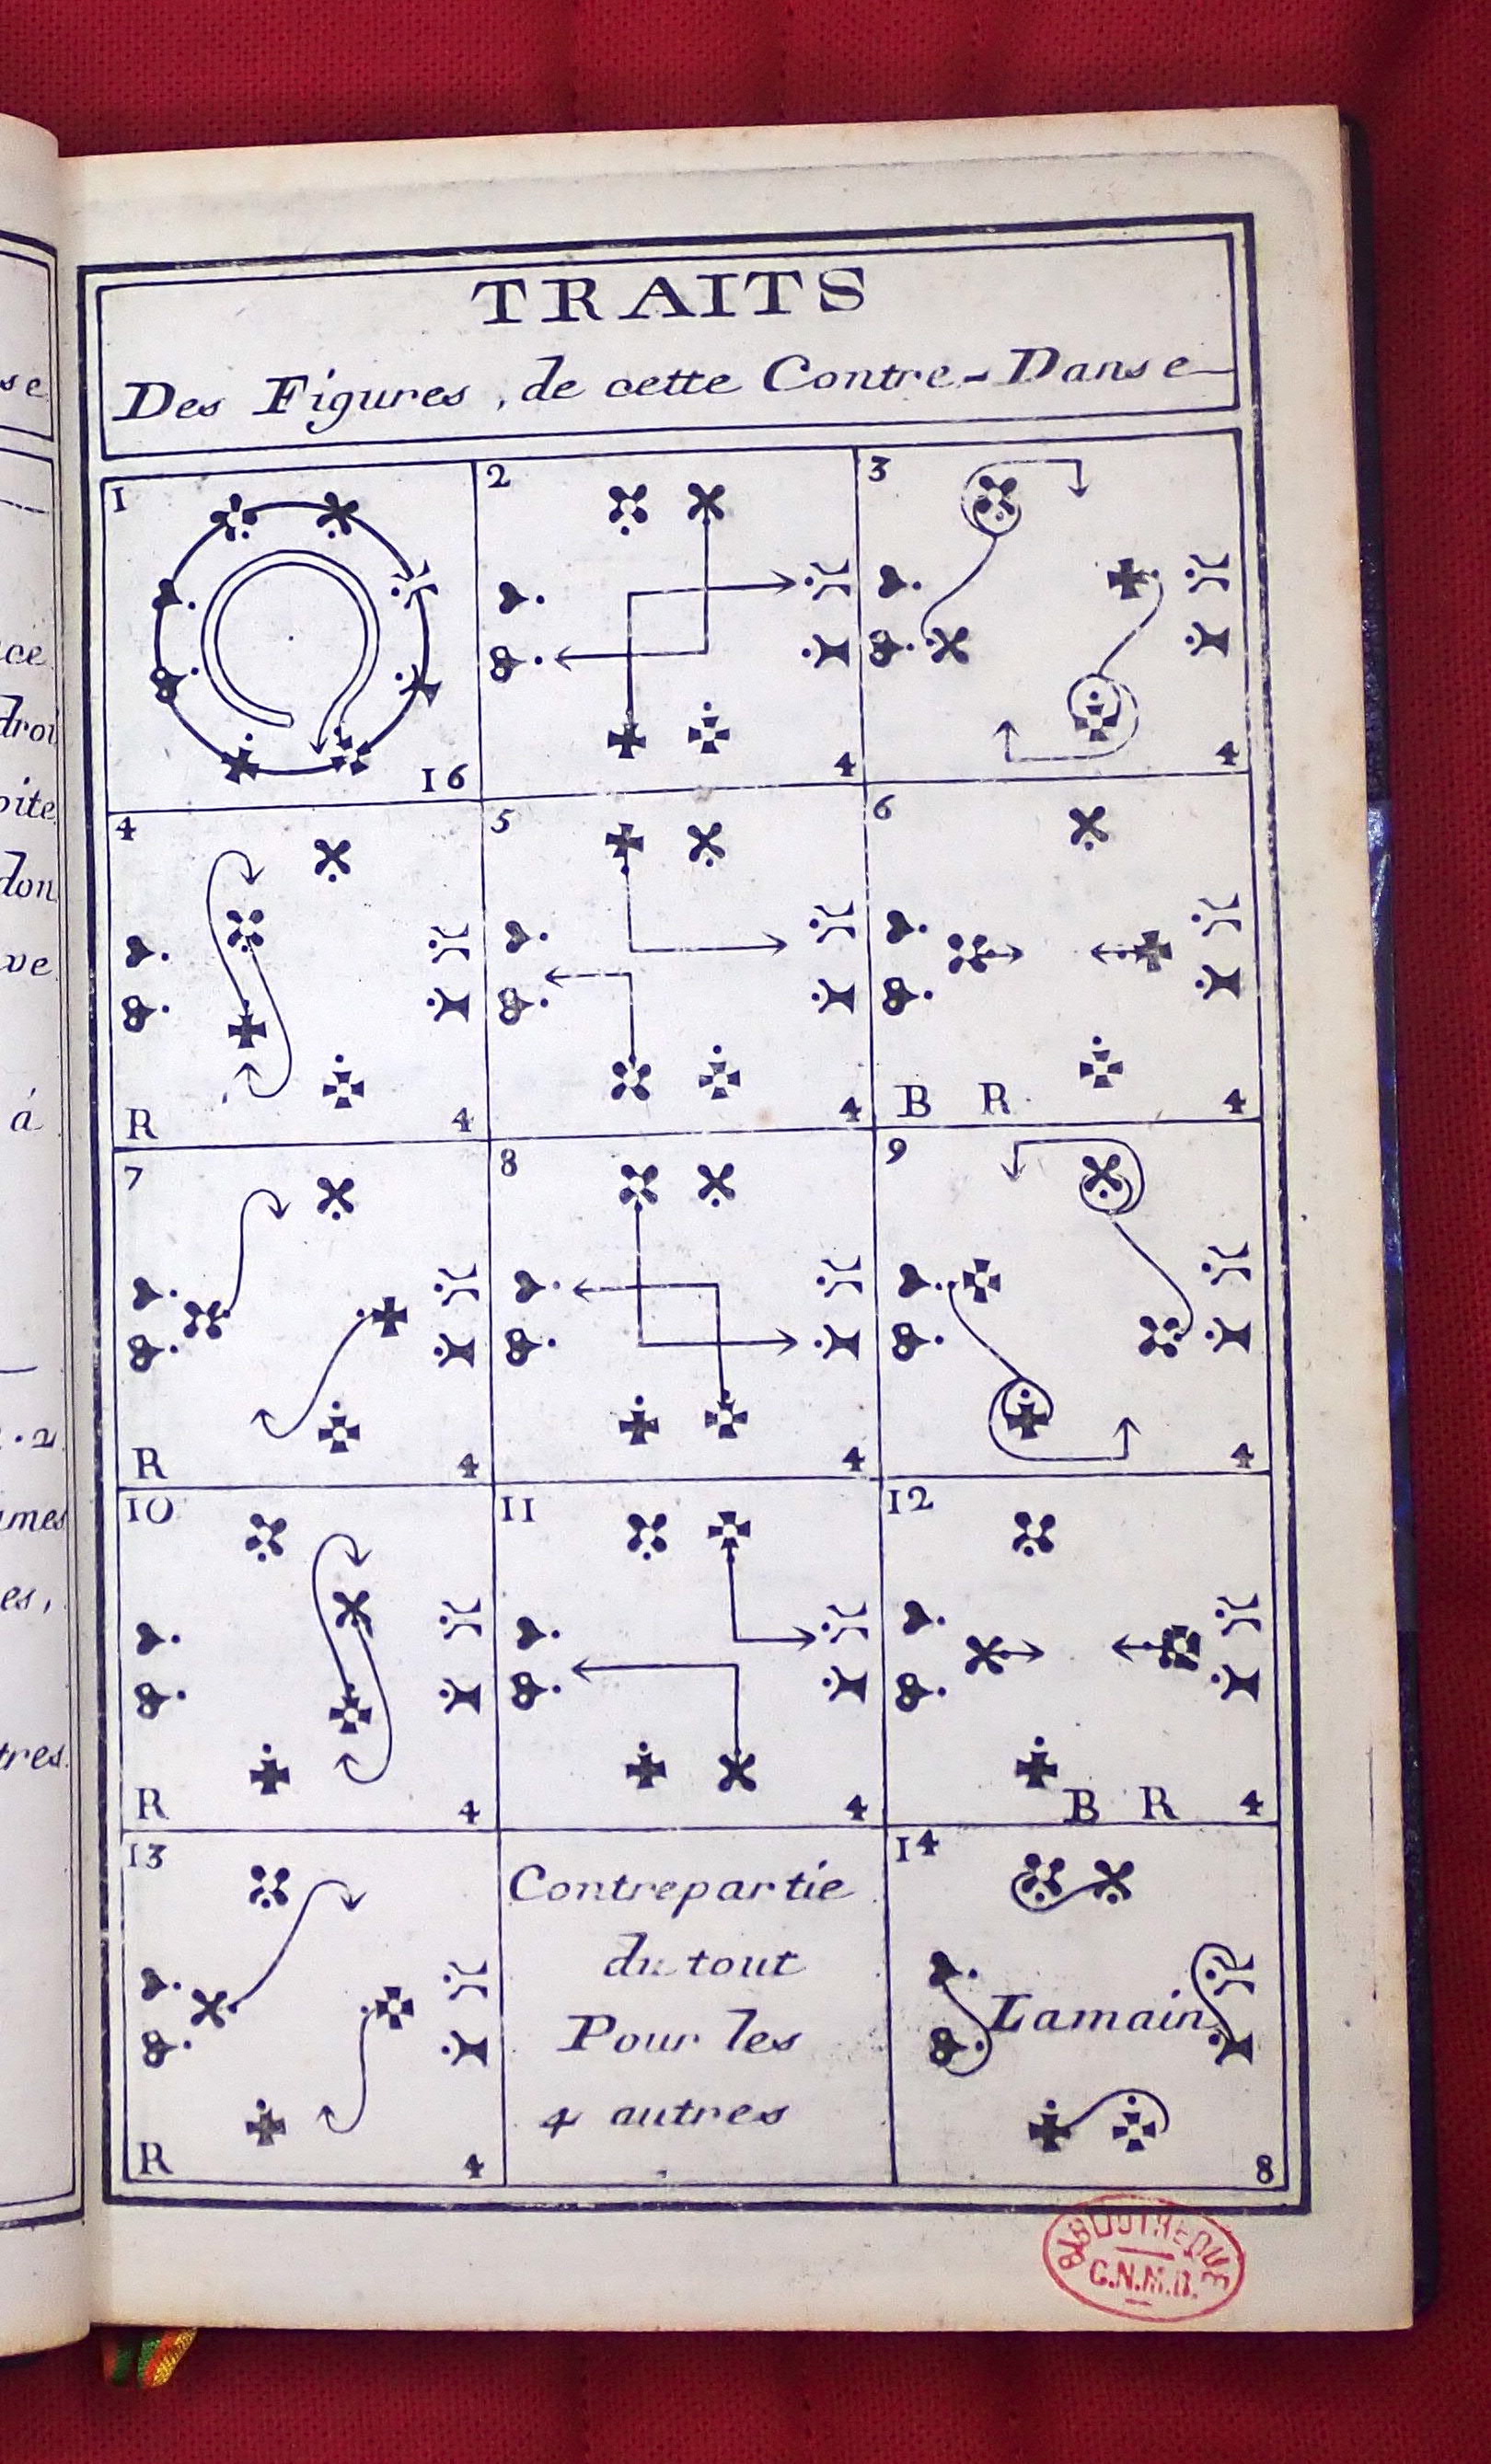 TRAITS
Des Figures, de cette Contre-Danse
1
16
2
4
3
4
4
R
4
5
4
6
B R
4
7
R
4
8
4
9
4
10
R
4
11
4
12
B R
4
13
R
4
Contrepartie
du tout
Pour les
4 autres
14
Lamain
8
BIBLIOTHEQUE
C.N.M.D.
se
ce
droi
oite
don
ve
á
umes
es,
tres